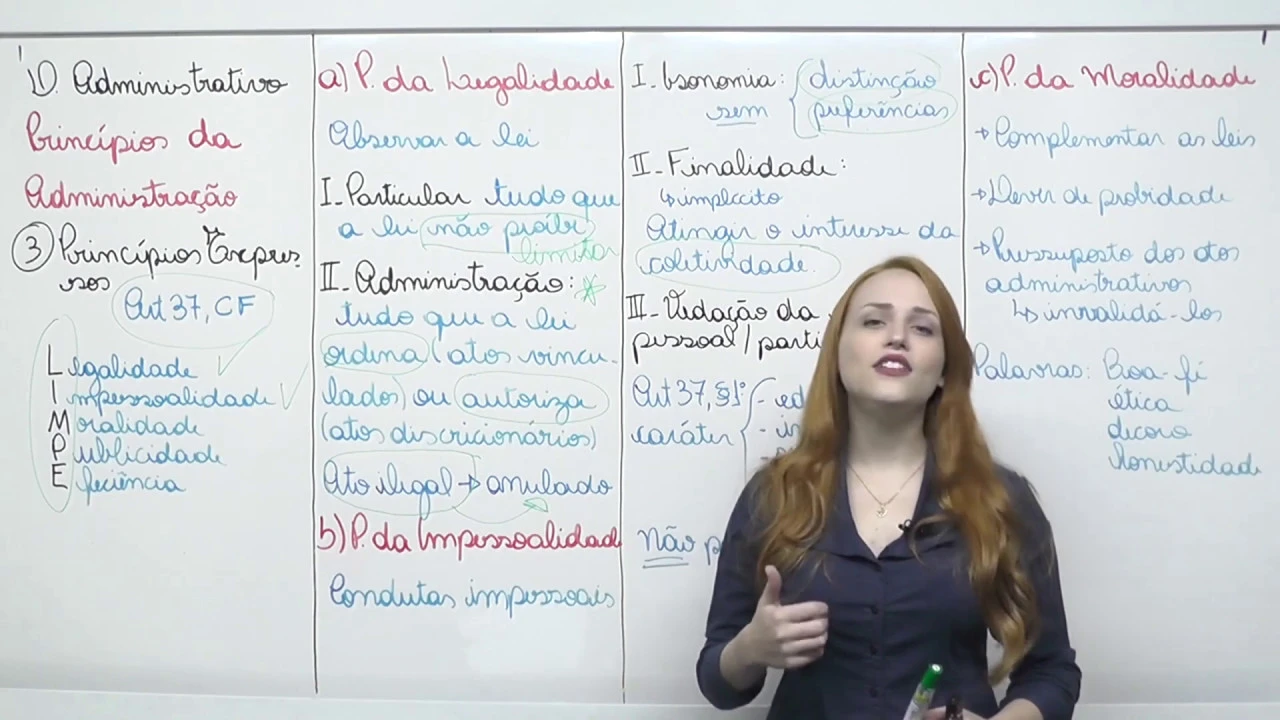 D. Administrativo
Princípios da
Administração
3 Princípios Expres-
sos
Art 37, CF
Legalidade
Impessoalidade
Moralidade
Publicidade
Eficiência
a) P. da Legalidade
Observar a lei
I. Particular tudo que
a lei não proíbe
limitar
II. Administração: *
tudo que a lei
ordena (atos vincu-
lados) ou autoriza
(atos discricionários)
Ato ilegal → anulado
b) P. da Impessoalidade
Condutas impessoais
I. Isonomia: distinção
sem preferências
II. Finalidade:
↳ implícito
Atingir o interesse da
coletividade.
III. Vedação da
pessoal/parti
Art 37, §1º - ed
caráter - in
Não p
c) P. da Moralidade
→ Complementar as leis
→ Dever de probidade
→ Pressuposto dos atos
administrativos
↳ invalidá-los
Palavras: Boa-fé
ética
decoro
honestidade